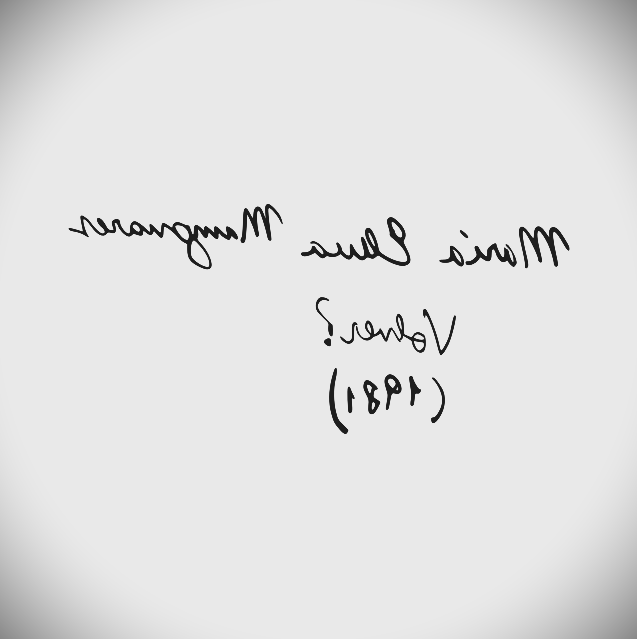 Maria Elena Manzanares
Volver?
(1981)